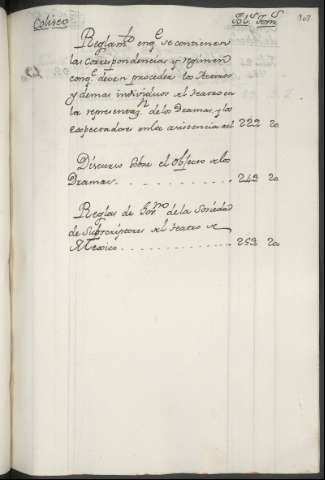 Coliseo
Fol.s Tom.s
Reglam.to en q.e se contienen
las correspondencias y regimen
con q.e deven proceder los Actores
y demas individuos del teatro en
la representaz.n de los Dramas, y los
Espectadores en la asistencia a el 222 20
Discurso sobre el Objecto de los
Dramas . . . . . . . . . . 249 20
Reglas de Gov.no de la Sociedad
de Subscriptores del teatro de
Mexico . . . . . . . . . . 253 20